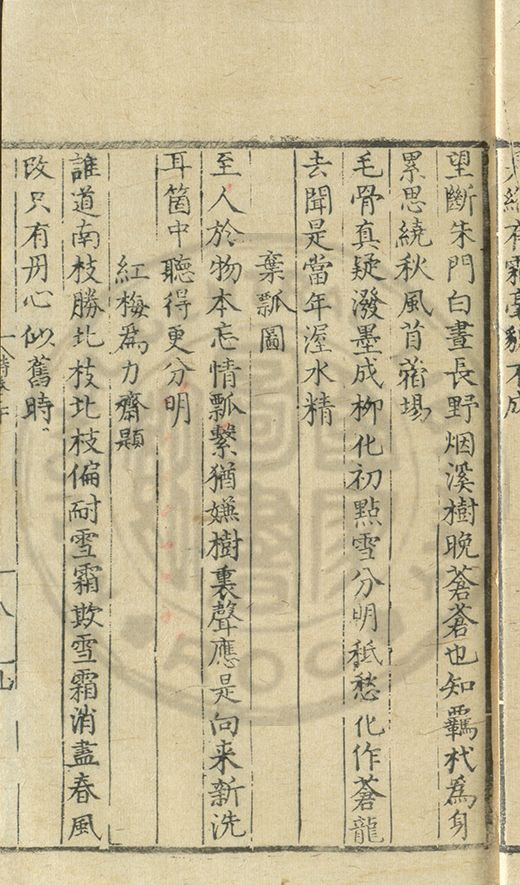 望斷朱門白晝長野烟溪樹晚蒼蒼也知羈杙為身
累思繞秋風首蓿場
毛骨真疑潑墨成柳化初點雪分明秪愁化作蒼龍
去聞是當年渥水精
棄瓢圖
至人於物本忘情瓢繫猶嫌樹裏聲應是向来新洗
耳箇中聽得更分明
紅梅為力齋題
誰道南枝勝北枝北枝偏耐雪霜欺雪霜消盡春風
改只有丹心似舊時